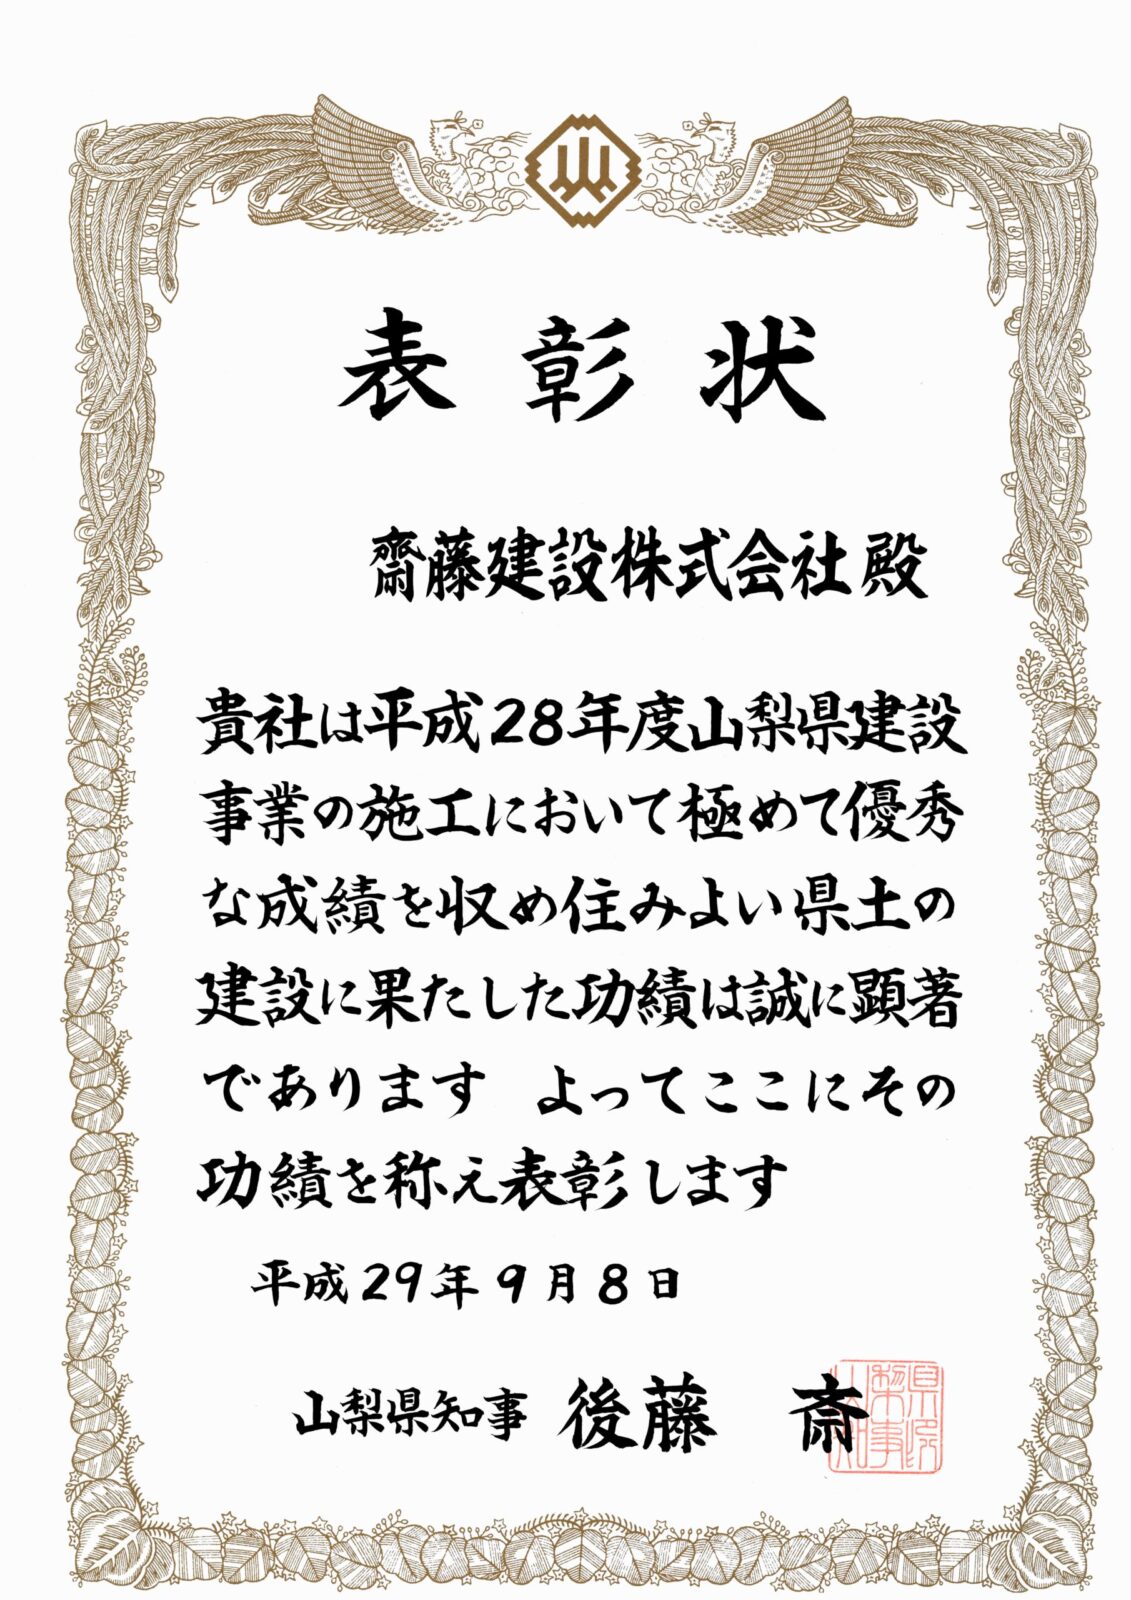 表彰状
齋藤建設株式会社殿
貴社は平成28年度山梨県建設
事業の施工において極めて優秀
な成績を収め住みよい県土の
建設に果たした功績は誠に顕著
であります よってここにその
功績を称え表彰します
平成29年9月8日
山梨県知事 後藤 斎